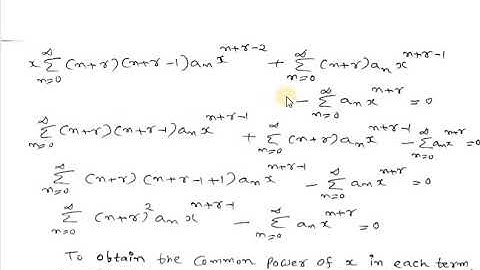 x ∑_{n=0}^{∞} (n+r)(n+r-1) a_n x^{n+r-2} + ∑_{n=0}^{∞} (n+r) a_n x^{n+r-1}
- ∑_{n=0}^{∞} a_n x^{n+r} = 0
∑_{n=0}^{∞} (n+r)(n+r-1) a_n x^{n+r-1} + ∑_{n=0}^{∞} (n+r) a_n x^{n+r-1} - ∑_{n=0}^{∞} a_n x^{n+r} = 0
∑_{n=0}^{∞} (n+r)(n+r-1+1) a_n x^{n+r-1} - ∑_{n=0}^{∞} a_n x^{n+r} = 0
∑_{n=0}^{∞} (n+r)^2 a_n x^{n+r-1} - ∑_{n=0}^{∞} a_n x^{n+r} = 0
To obtain the common power of x in each term,